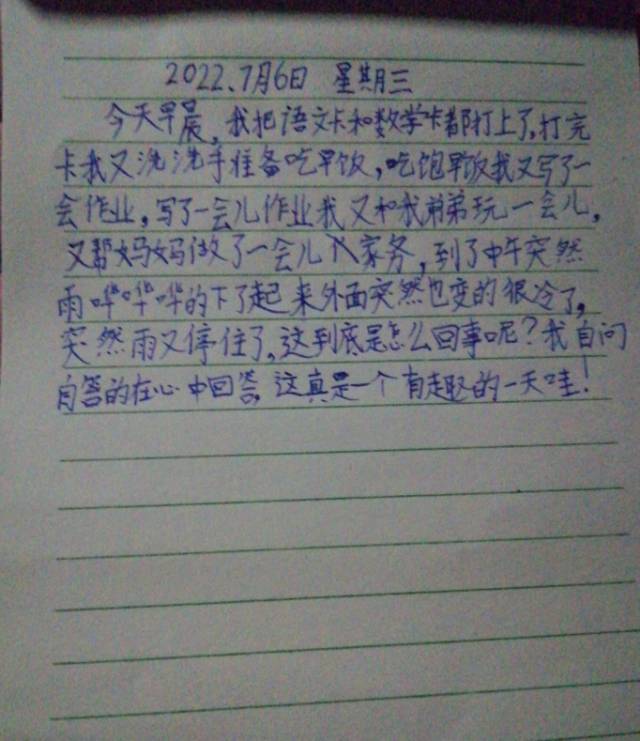 2022.7月6日 星期三
今天早晨,我把语文卡和数学卡都打上了,打完
卡我又洗洗手准备吃早饭,吃饱早饭我又写了一
会作业,写了一会儿作业我又和我弟弟玩一会儿,
又帮妈妈做了一会儿家务,到了中午突然
雨哗哗哗的下了起来外面突然也变的很冷了,
突然雨又停住了,这到底是怎么回事呢?我自问
自答的在心中回答,这真是一个有趣的一天哇!